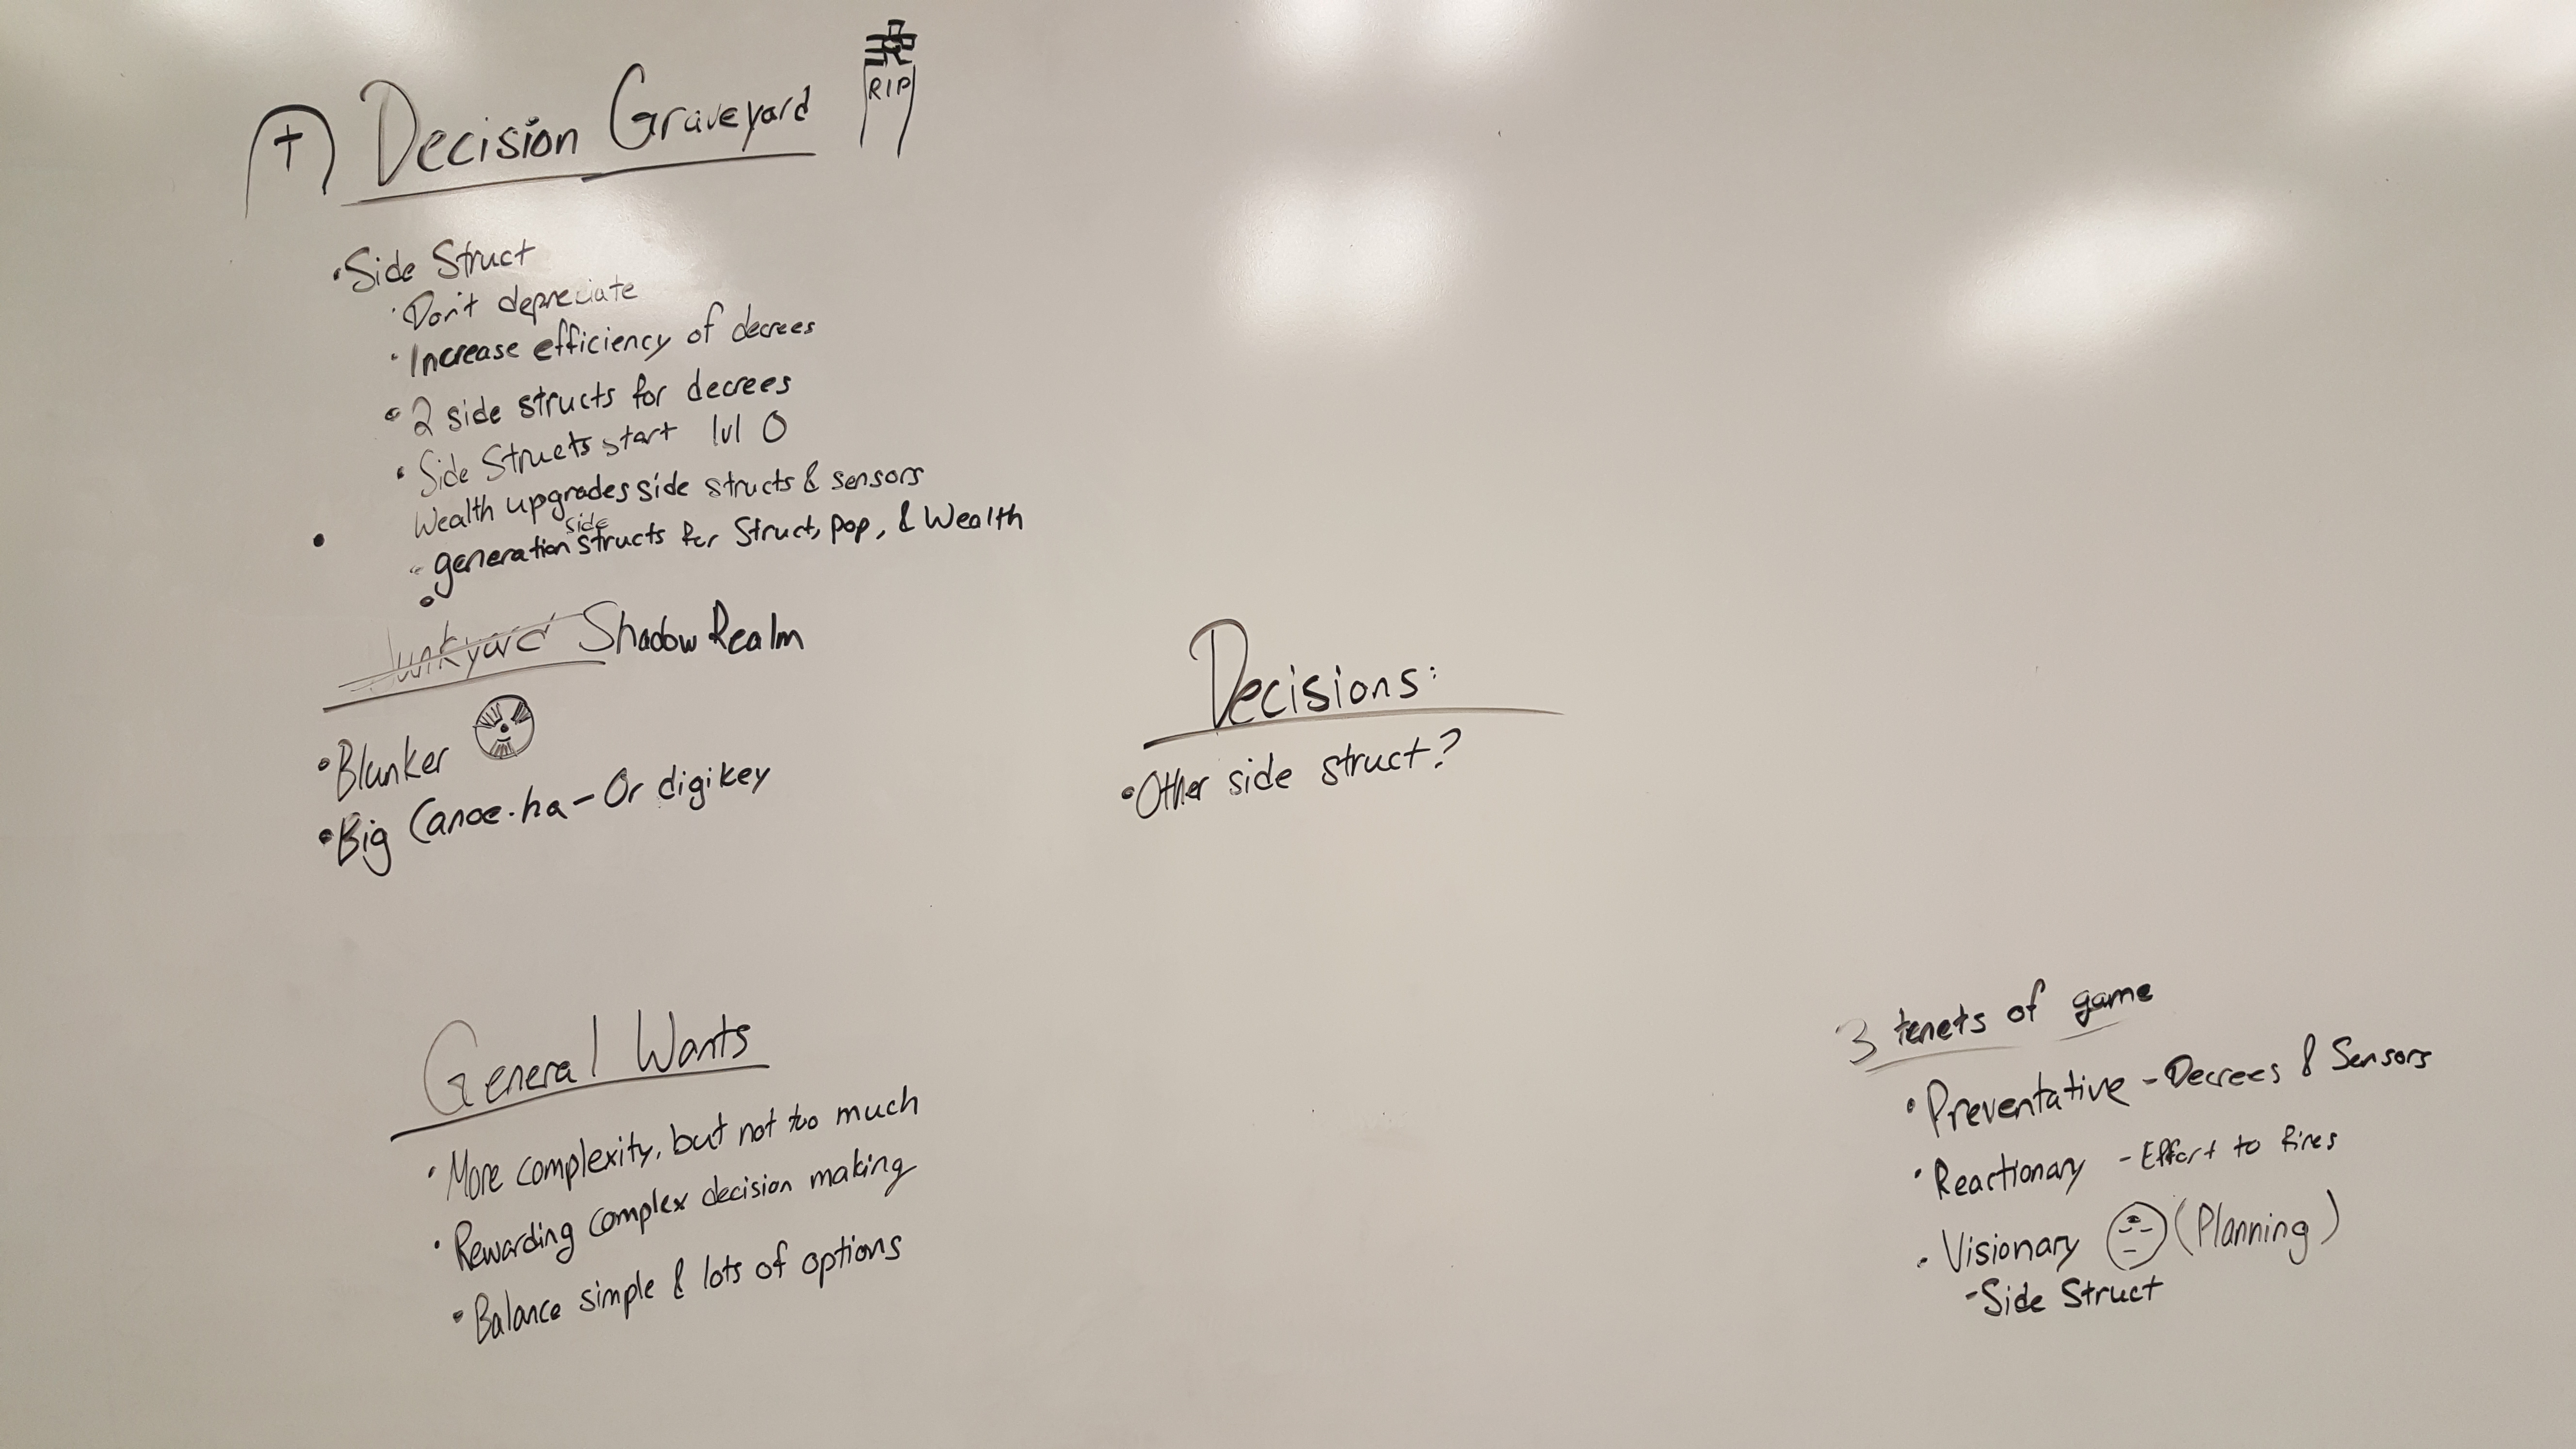 Decision Graveyard
RIP
• Side Struct
• Don't depreciate
• Increase efficiency of decrees
• 2 side structs for decrees
• Side Structs start lvl 0
Wealth upgrades side structs & sensors
- generation side structs for Struct, pop, & Wealth
Junkyard Shadow Realm
• Blunker
• Big Canoe.ha - Or digikey
Decisions:
• Other side struct?
General Wants
• More complexity, but not too much
• Rewarding complex decision making
• Balance simple & lots of options
3 tenets of game
• Preventative - Decrees & Sensors
• Reactionary - Effort to fires
• Visionary (Planning)
- Side Struct